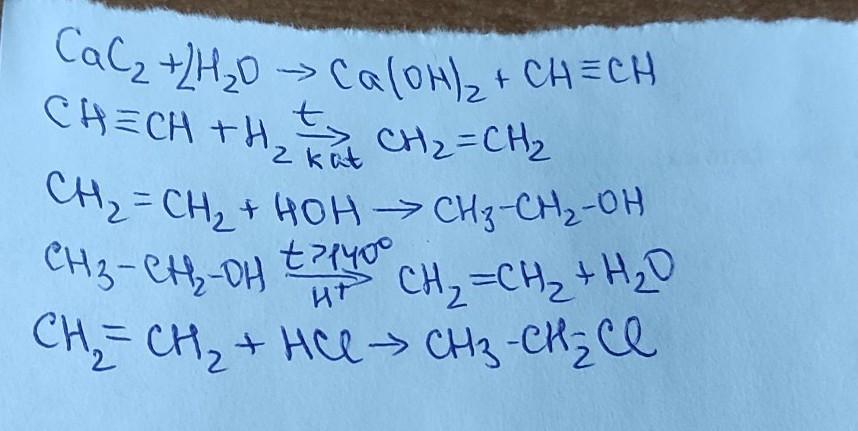 CaC₂ + 2H₂O → Ca(OH)₂ + CH≡CH
CH≡CH + H₂ →(t, kat) CH₂=CH₂
CH₂=CH₂ + HOH → CH₃-CH₂-OH
CH₃-CH₂-OH →(t>140°, H⁺) CH₂=CH₂ + H₂O
CH₂=CH₂ + HCl → CH₃-CH₂Cl